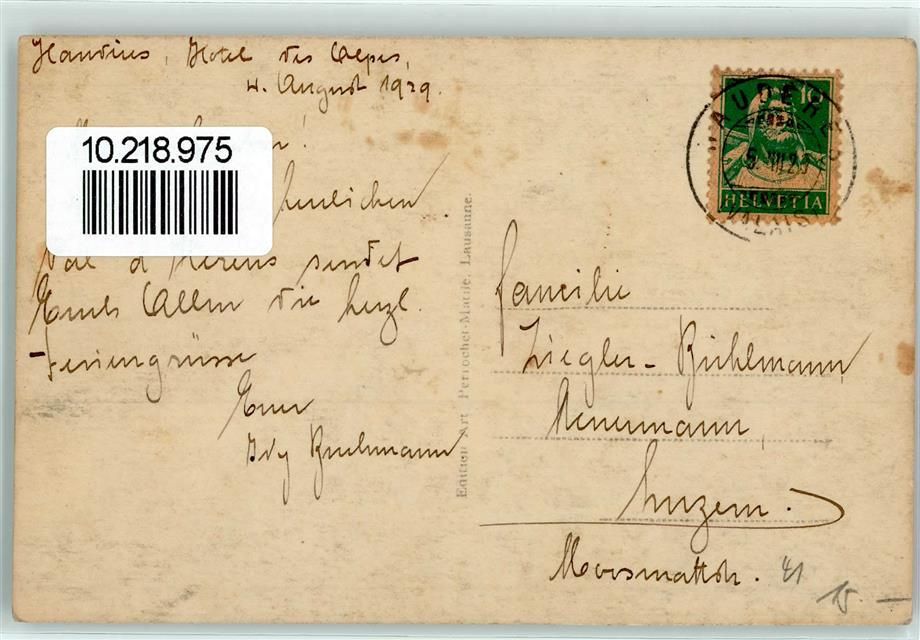 Haudères, Hotel des Alpes,
4. August 1929.
10.218.975
Val d'Hérens sendet
Euch Allen die herzl.
Feriengrüsse
Euer
Idy Bühlmann
Edition Art Perrochet-Matile, Lausanne.
HAUDERES
VALAIS
10
HELVETIA
Familie
Ziegler-Bühlmann,
Luzern.
Moosmattstr. 41
15.-